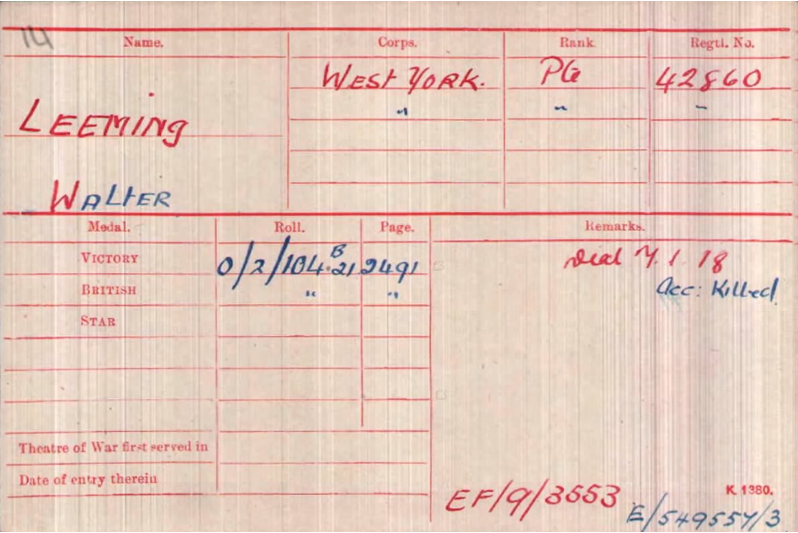 14
Name. Corps. Rank. Regtl. No.
WEST YORK. Pte 42860
" " "
LEEMING
WALTER
Medal. Roll. Page. Remarks.
VICTORY 0/2/104.B21 2491 Died 7.1.18
BRITISH " " Acc: Killed
STAR
Theatre of War first served in
Date of entry therein
K. 1380.
EF/9/3553
E/549557/3